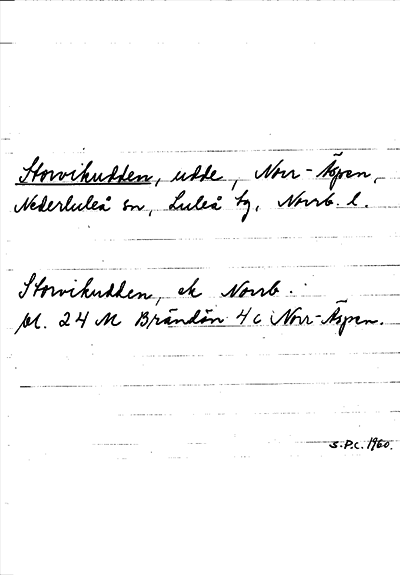 Storvikudden, udde, Norr-Äspen,
Nederluleå sn, Luleå tg, Norrb. l.
Storvikudden, ek Norrb.
bl. 24 M Brändön 4 c Norr-Äspen.
S.P.C. 1960.